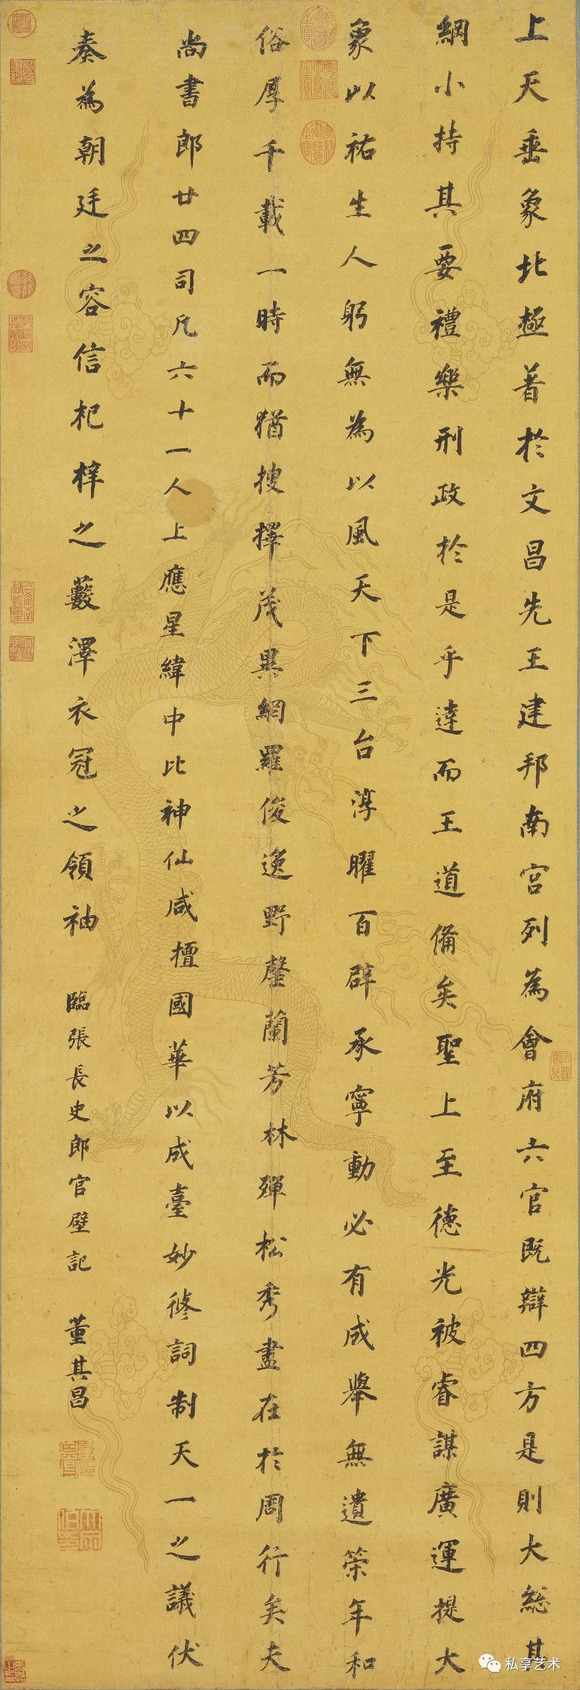 上天垂象北極著於文昌先王建邦南宮列為會府六官既辯四方是則大總其
綱小持其要禮樂刑政於是乎達而王道備矣聖上至德光被睿謀廣運提大
象以祐生人躬無為以風天下三台淳曜百辟承寧動必有成舉無遺筞年和
俗厚千載一時而猶搜擇茂異網羅俊逸野罄蘭芳林殫松秀盡在於周行矣夫
尚書郎廿四司凡六十一人上應星緯中比神仙咸擅國華以成臺妙修詞制天一之議伏
奏為朝廷之容信杞梓之藪澤衣冠之領袖
臨張長史郎官壁記
董其昌
私享艺术